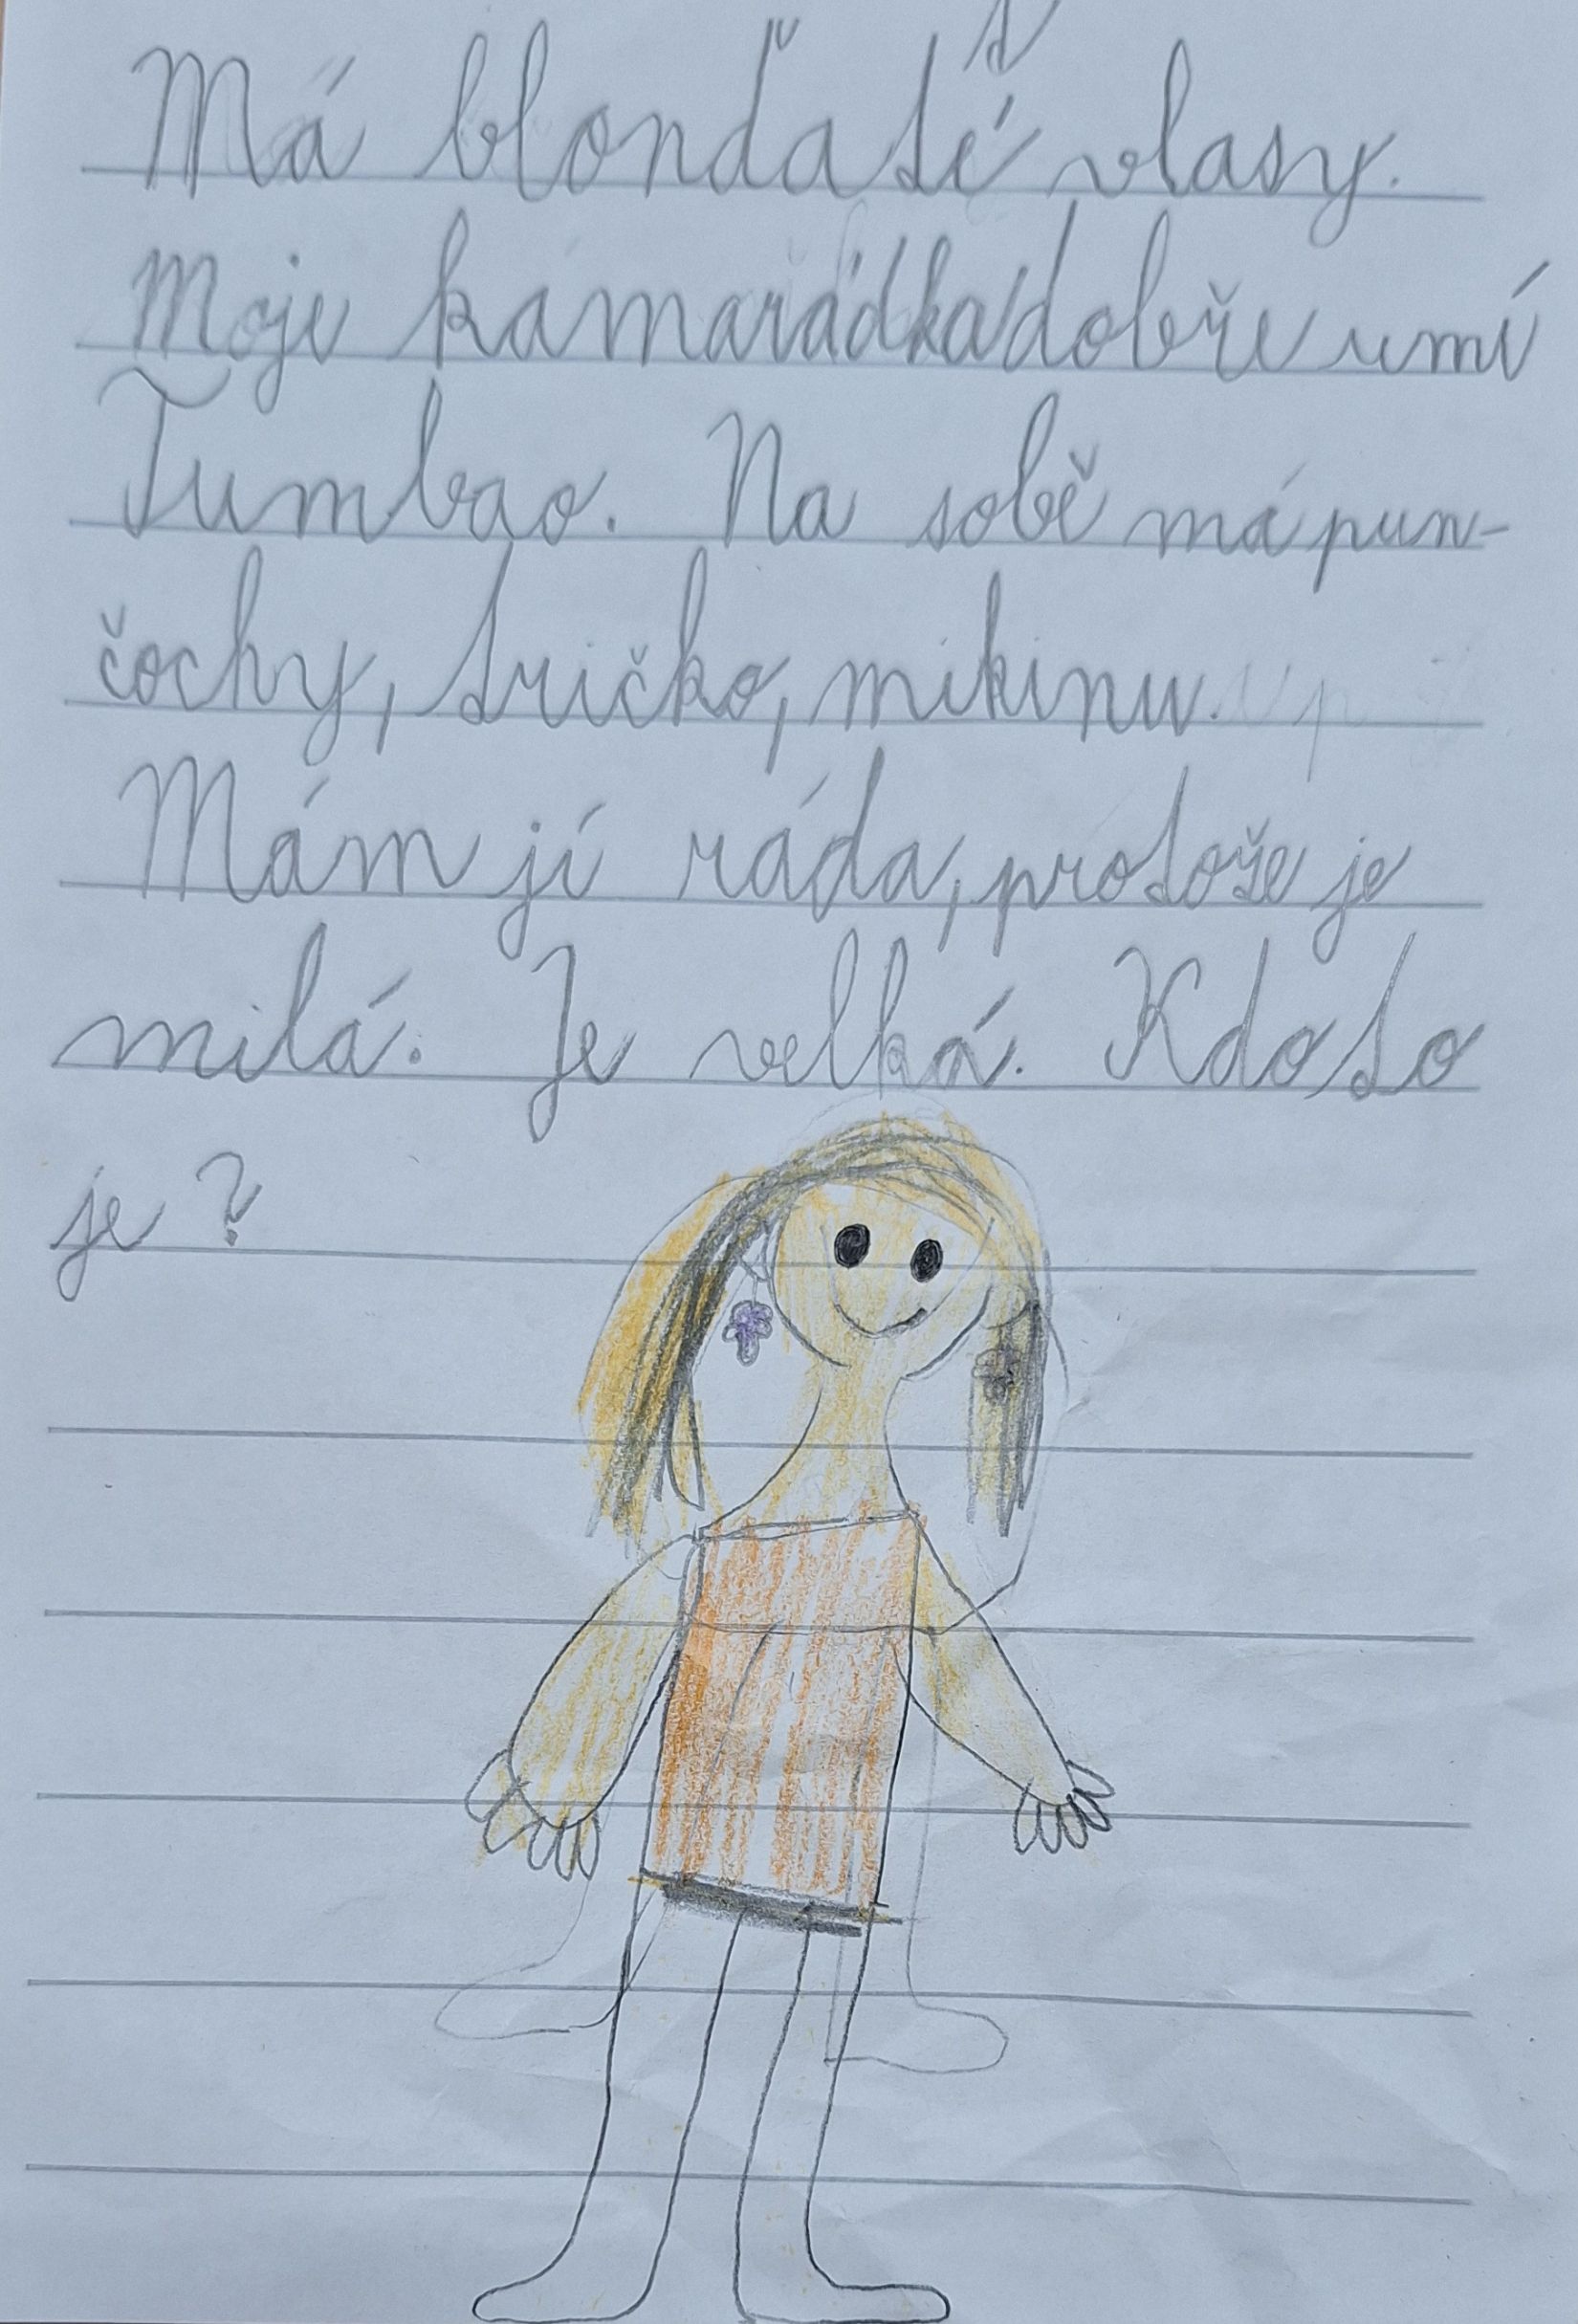 Má blonďaté vlasy.
Moje kamarádka dobře umí
Tumbao. Na sobě má pun-
čochy, tričko, mikinu.
Mám jí ráda, protože je
milá. Je velká. Kdo to
je?